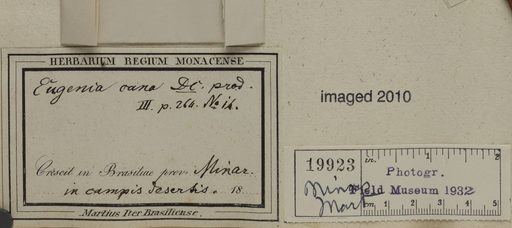 HERBARIUM REGIUM MONACENSE
Eugenia cana DC. prod.
III. p. 264. No 14.
Crescit in Brasiliae prov. Minar.
in campis desertis. 18
Martius Iter Brasiliense.
imaged 2010
19923
in. 1 2
Photogr.
Field Museum 1932
Minas
Mart
cm 1 2 3 4 5